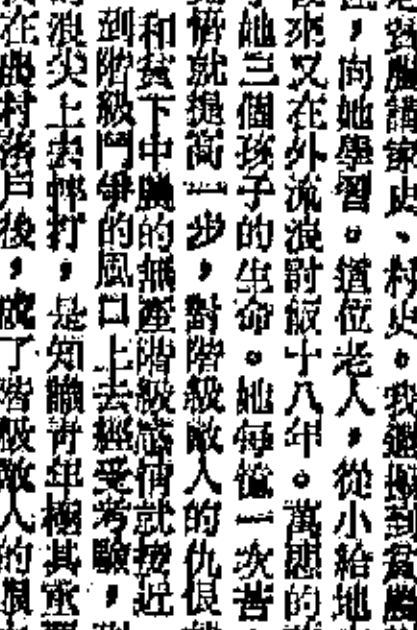 貧農講家史、村史。我還時到貧農
，向她學習。這位老人，從小給地
來又在外流浪討飯十八年。萬惡的
她三個孩子的生命。她每憶一次苦
情就提高一步，對階級敵人的仇恨
和貧下中農的無產階級感情就接近
到階級鬥爭的風口上去經受考驗，
浪尖上去摔打，是知識青年極其重
在農村落戶後，成了階級敵人的眼